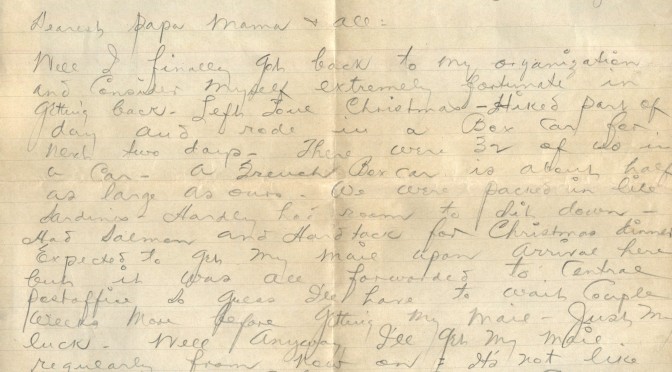 Dearest Papa Mama + all:
Well I finally got back to my organization
and consider myself extremely fortunate in
getting back - Left Toul Christmas - Hiked part of
day and rode in a Box Car for
next two days - There were 32 of us in
a Car - A French Box car is about half
as large as ours - We were packed in like
Sardines - Hardley had room to sit down -
Had Salmon and Hardtack for Christmas dinner
Expected to get my mail upon arrival here
but it was all forwarded to Central
postoffice so guess I'll have to wait Couple
weeks more before getting my mail - Just my
luck - Well anyway I'll get my mail
regularly from now on & it's not like